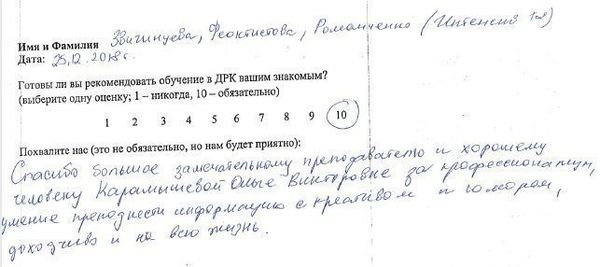 Имя и Фамилия Звигинцева, Феоктистова, Романченко (Интенсив
Дата: 25.12.2018г.
Готовы ли вы рекомендовать обучение в ДРК вашим знакомым?
(выберите одну оценку; 1 – никогда, 10 – обязательно)
1 2 3 4 5 6 7 8 9 10
Похвалите нас (это не обязательно, но нам будет приятно):
Спасибо большое замечательному преподавателю и хорошему
человеку Карамышевой Ольге Викторовне за профессионализм,
умение преподнести информацию с креативом и юмором,
доходчиво и на всю жизнь.